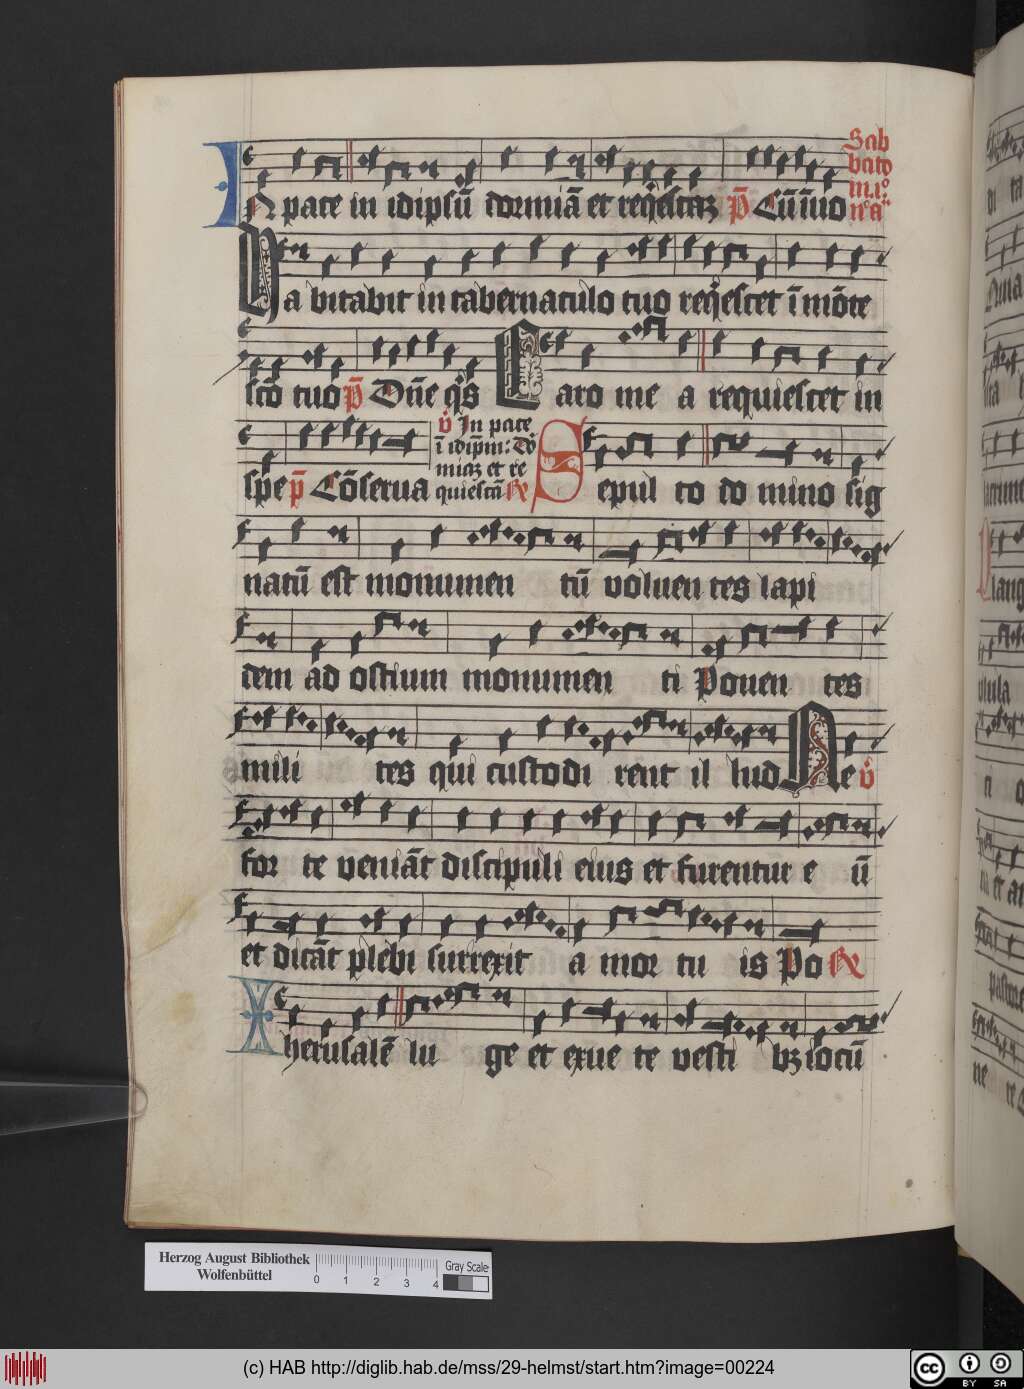 Sab
bato
in .i.º
In pace in idipsū dormiā et reqͥescaꝫ p̄ Cū īuo
Habitabit in tabernaculo tuo reqͥescet ī mōte
scō tuo p̄ Dn̄e qͥs Caro me a requiescet in
spe p̄ Cōserua
v̊ In pace
ī idip̄m: do
miaꝫ et re
quiescā ℟
Sepul to do mino sig
natū est monumen tū voluen tes lapi
dem ad ostium monumen ti Ponen tes
mili tes qui custodi rent il lud Ne v̊
for te veniāt discipuli eius et furentur e ū
et dicāt plebi surrexit a mor tu is Po ℟
Iherusalē lu ge et exue te vesti bꝫ iocū
Herzog August Bibliothek
Wolfenbüttel
0 1 2 3 4
Gray Scale
(c) HAB http://diglib.hab.de/mss/29-helmst/start.htm?image=00224
cc BY SA